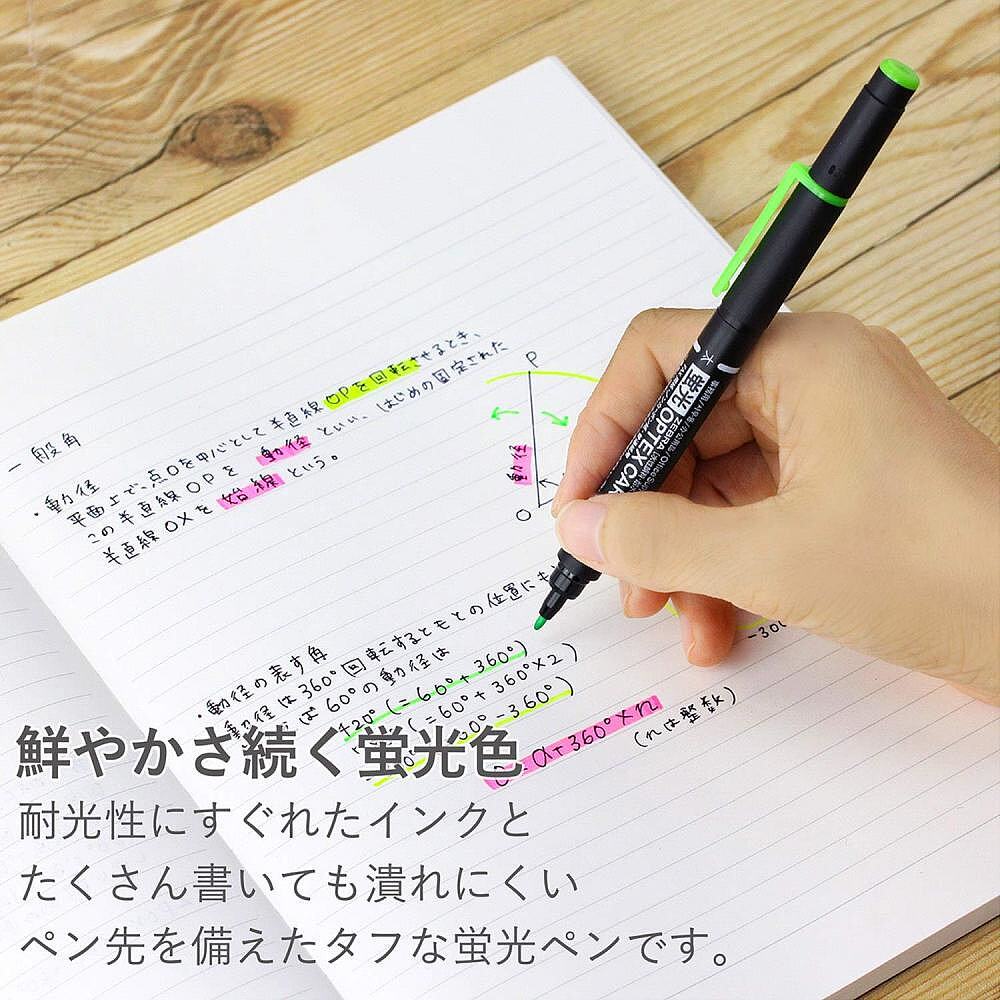 一般角
・動径
平面上で、点Oを中心として半直線OPを回転させるとき、
この半直線OPを 動径 といい、はじめの固定された
半直線OXを 始線 という。
P
動径
O
・動径の表す角
動径は360°回転するともとの位置にも
ば60°の動径は
420°(=60°+360°)
(=60°+360°×2)
60°-360°)
α+360°×n
(nは整数)
-300
太
蛍光
ZEBRA
OPTEX CAR
鮮やかさ続く蛍光色
耐光性にすぐれたインクと
たくさん書いても潰れにくい
ペン先を備えたタフな蛍光ペンです。